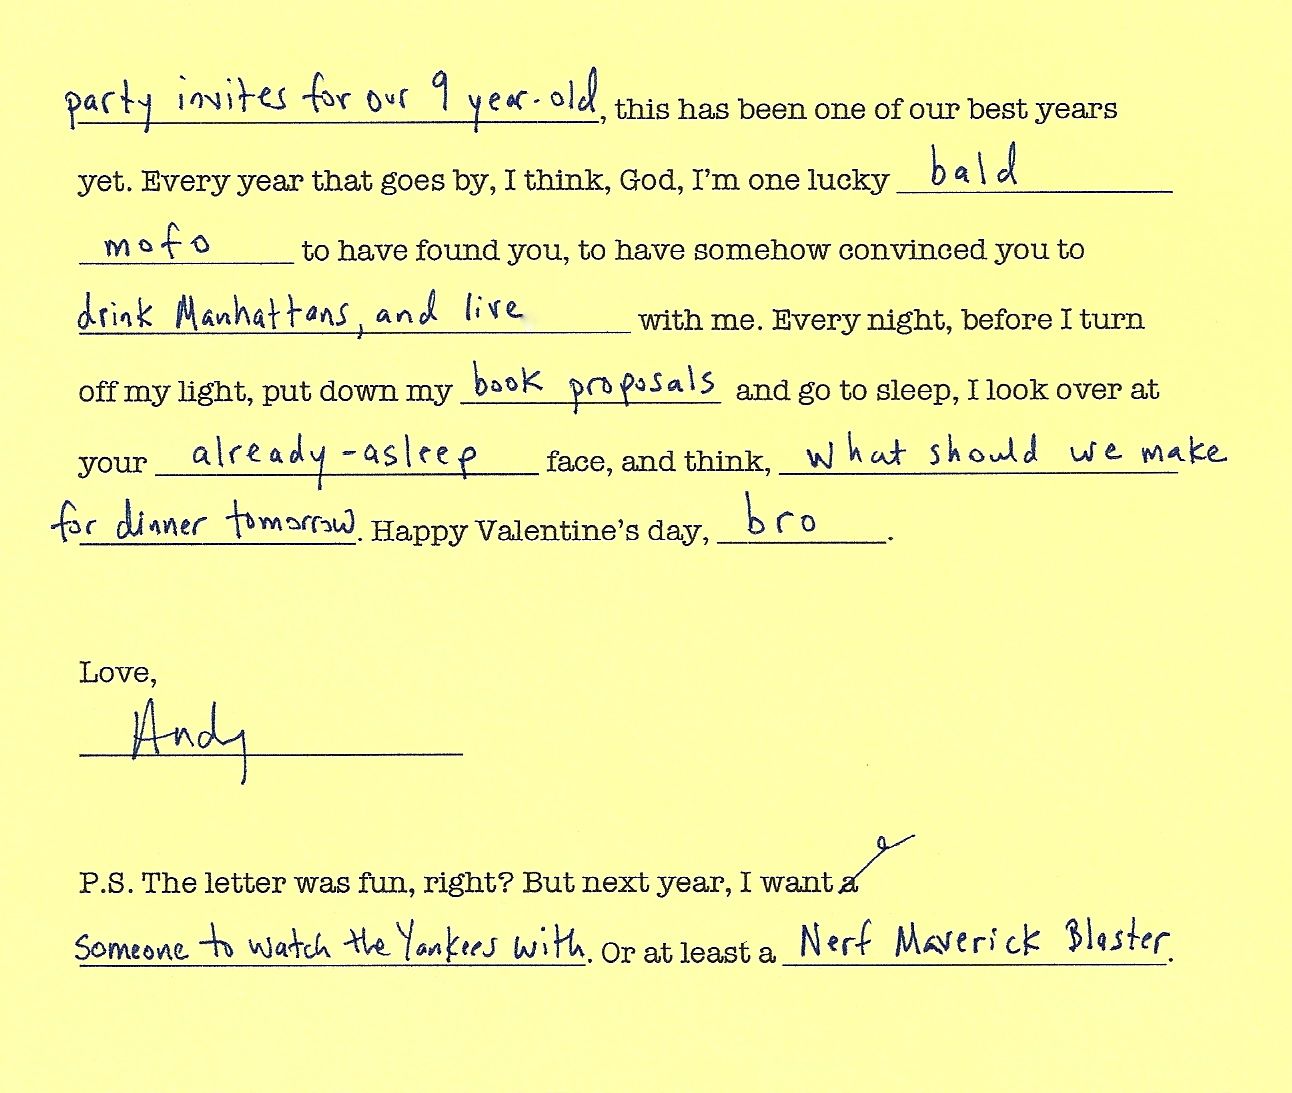 party invites for our 9 year-old, this has been one of our best years
yet. Every year that goes by, I think, God, I'm one lucky bald
mofo to have found you, to have somehow convinced you to
drink Manhattans, and live with me. Every night, before I turn
off my light, put down my book proposals and go to sleep, I look over at
your already-asleep face, and think, what should we make
for dinner tomorrow. Happy Valentine's day, bro.
Love,
Andy
P.S. The letter was fun, right? But next year, I want a
someone to watch the Yankees with. Or at least a Nerf Maverick Blaster.